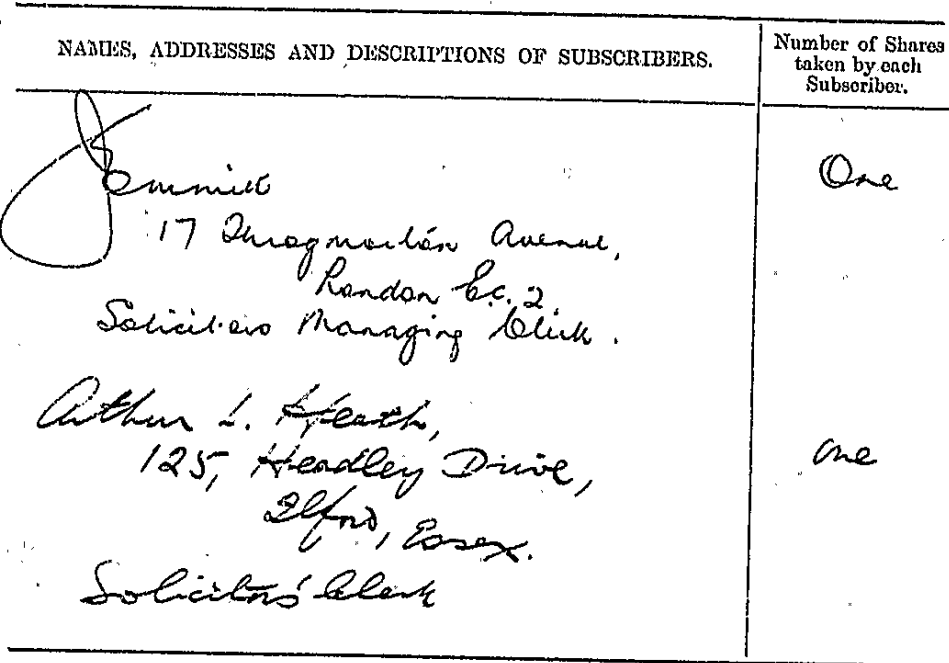 NAMES, ADDRESSES AND DESCRIPTIONS OF SUBSCRIBERS.
Number of Shares
taken by each
Subscriber.
One
17 Throgmorton Avenue,
London E.C. 2
Solicitors Managing Clerk.
Arthur L. Heath,
one
125, Headley Drive,
Ilford, Essex.
Solicitors' Clerk